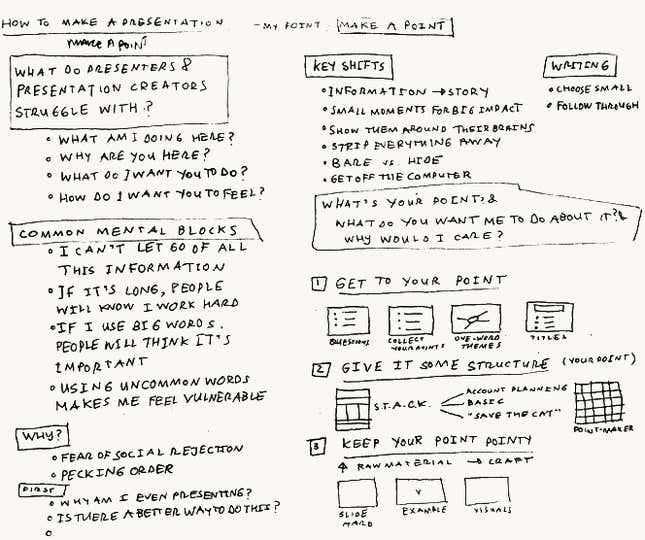 HOW TO MAKE A PRESENTATION - MY POINT: MAKE A POINT
MAKE A POINT
WHAT DO PRESENTERS &
PRESENTATION CREATORS
STRUGGLE WITH?
• WHAT AM I DOING HERE?
• WHY ARE YOU HERE?
• WHAT DO I WANT YOU TO DO?
• HOW DO I WANT YOU TO FEEL?
COMMON MENTAL BLOCKS
• I CAN'T LET GO OF ALL
THIS INFORMATION
• IF IT'S LONG, PEOPLE
WILL KNOW I WORK HARD
• IF I USE BIG WORDS,
PEOPLE WILL THINK IT'S
IMPORTANT
• USING UNCOMMON WORDS
MAKES ME FEEL VULNERABLE
WHY?
• FEAR OF SOCIAL REJECTION
• PECKING ORDER
FIRST
• WHY AM I EVEN PRESENTING?
• IS THERE A BETTER WAY TO DO THIS?
KEY SHIFTS
• INFORMATION → STORY
• SMALL MOMENTS FOR BIG IMPACT
• SHOW THEM AROUND THEIR BRAINS
• STRIP EVERYTHING AWAY
• BARE vs. HIDE
• GET OFF THE COMPUTER
WRITING
• CHOOSE SMALL
• FOLLOW THROUGH
WHAT'S YOUR POINT? &
WHAT DO YOU WANT ME TO DO ABOUT IT? &
WHY WOULD I CARE?
1 GET TO YOUR POINT
QUESTIONS
COLLECT
YOUR POINTS
ONE-WORD
THEMES
TITLES
2 GIVE IT SOME STRUCTURE (YOUR POINT)
S.T.A.C.K.
ACCOUNT PLANNING
BASIC
"SAVE THE CAT"
POINT-MAKER
3 KEEP YOUR POINT POINTY
↑ RAW MATERIAL → CRAFT
SLIDE
EXAMPLE
VISUALS